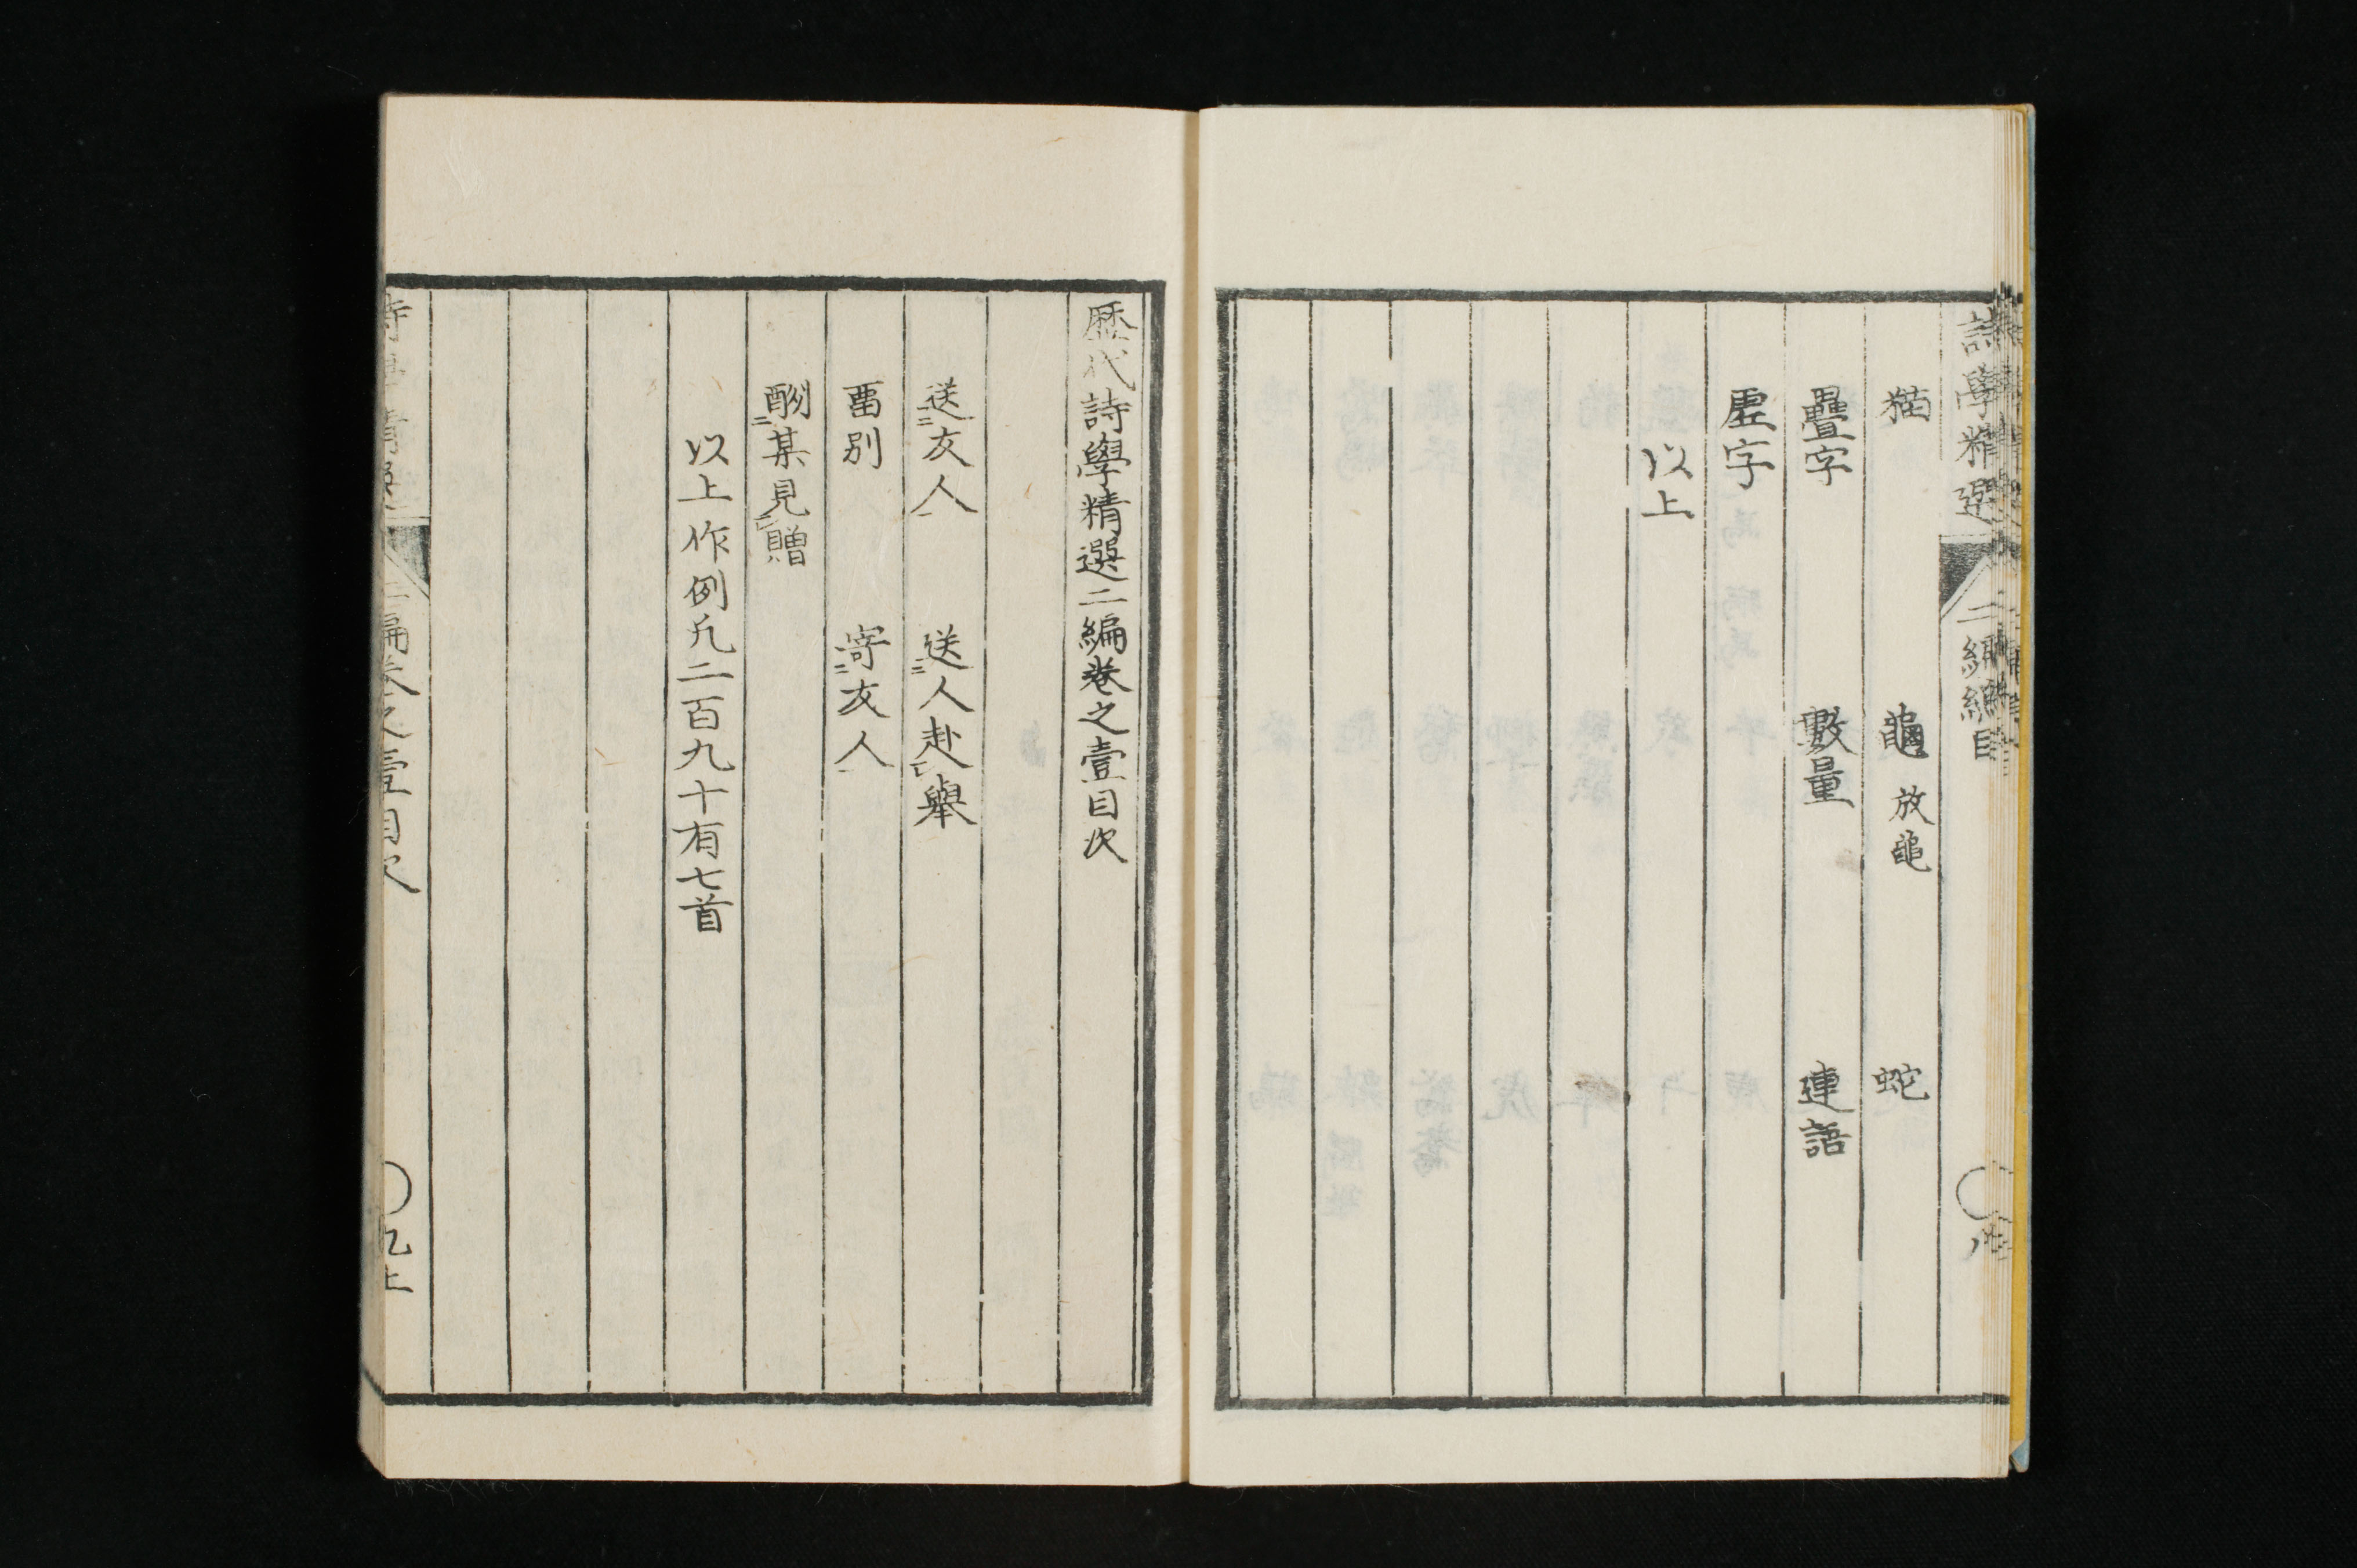 詩學精選 二編總目
猫 龜 放龜 蛇
疊字 數量 連語
虛字
以上
歷代詩學精選二編卷之壹目次
送二友人一 送二人赴一レ舉
畱別 寄二友人一
酬二某見一レ贈
以上作例凡二百九十有七首
二編卷之壹目次 九上